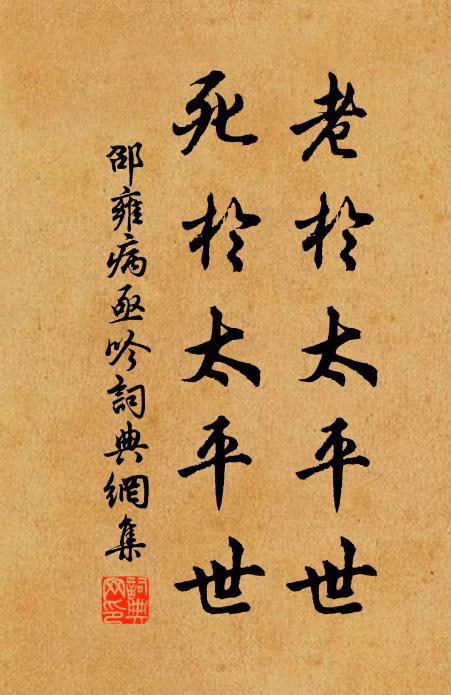 老於太平世
死於太平世
邵雍病亟吟詞典網集
詞典网印